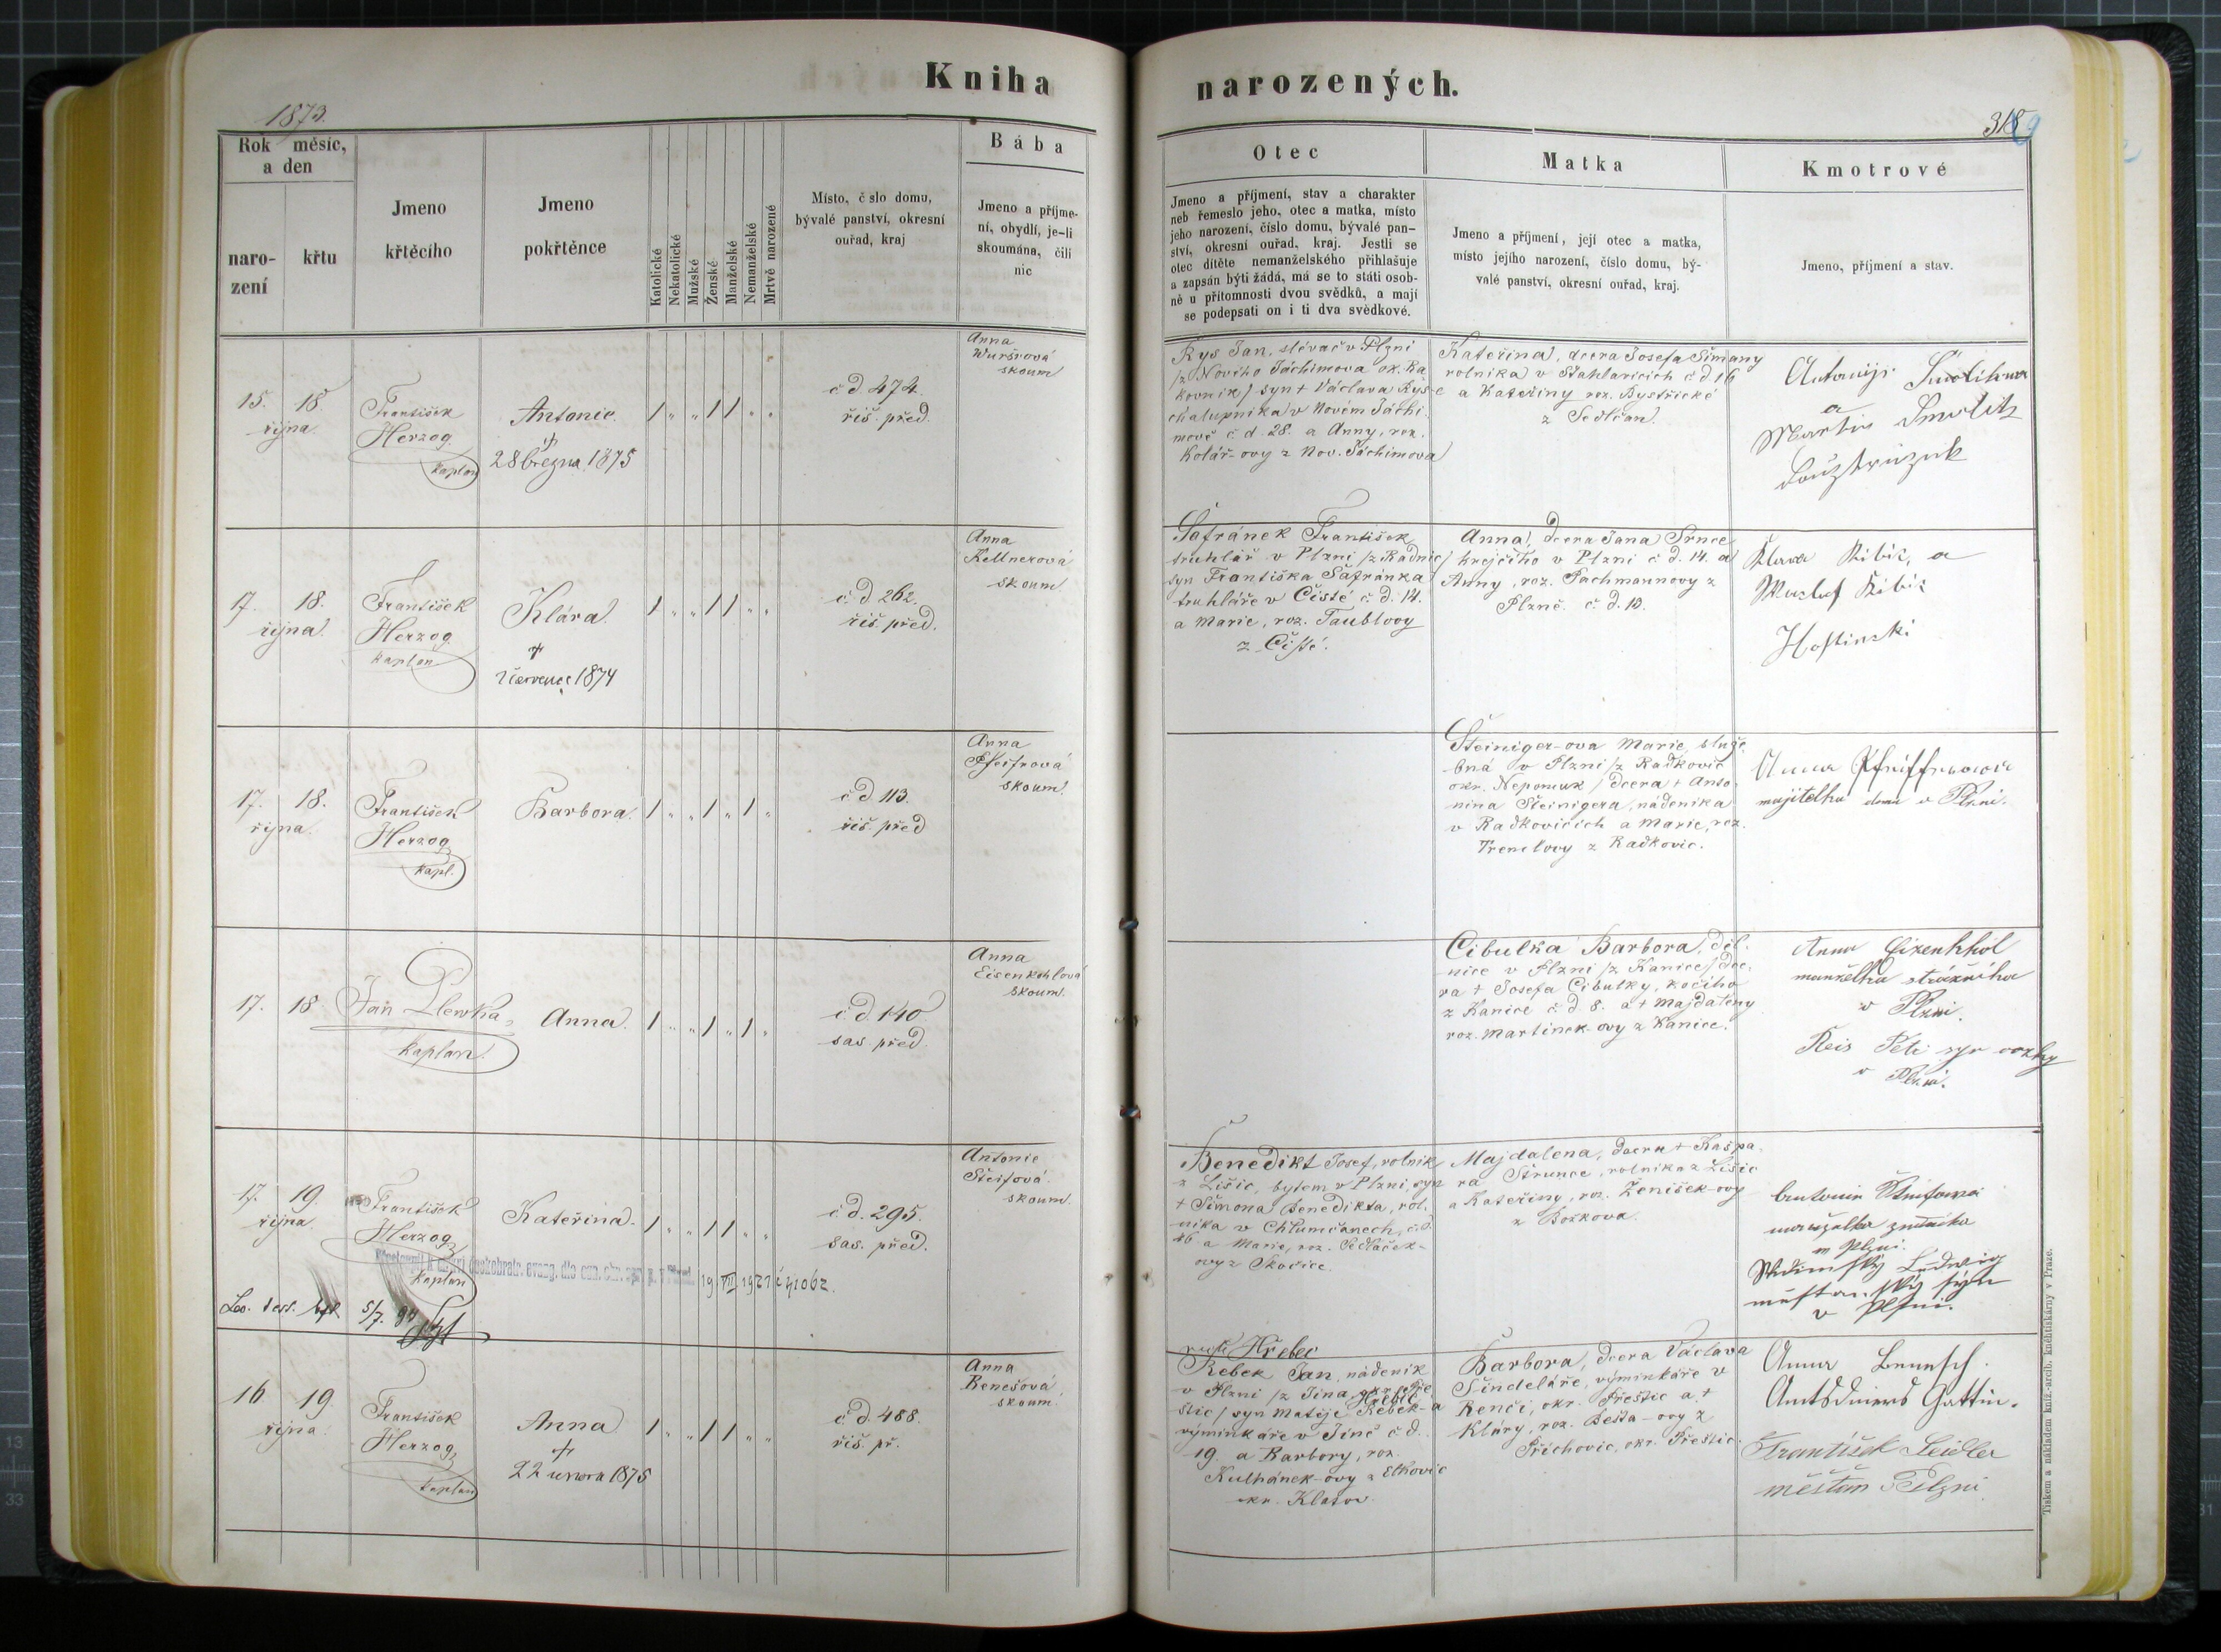 Kniha
narozených.
1873.
318
9
Rok měsíc,
a den
naro-
zení
křtu
Jmeno
křtěcího
Jmeno
pokřtěnce
Katolické
Nekatolické
Mužské
Ženské
Manželské
Nemanželské
Mrtvě narozené
Místo, č slo domu,
bývalé panství, okresní
ouřad, kraj
Bába
Jmeno a příjme-
ní, obydlí, je-li
skoumána, čili
nic
Otec
Jmeno a příjmení, stav a charakter
neb řemeslo jeho, otec a matka, místo
jeho narození, číslo domu, bývalé pan-
ství, okresní ouřad, kraj. Jestli se
otec dítěte nemanželského přihlašuje
a zapsán býti žádá, má se to státi osob-
ně u přítomnosti dvou svědků, a mají
se podepsati on i ti dva svědkové.
Matka
Jmeno a příjmení, její otec a matka,
místo jejího narození, číslo domu, bý-
valé panství, okresní ouřad, kraj.
Kmotrové
Jmeno, příjmení a stav.
15. 18.
října
František
Herzog
kaplan
Antonie
†
28 března 1875
1 " " 1 1 " "
č d. 474.
řiš. před.
Anna
Wuršrová
skoum
Rys Jan, slévač v Plzni
/z Nového Jáchimova ok. Ra
kovník/ syn † Václava Ryse
chalupníka v Novém Jáchi-
mově č. d. 28. a Anny, roz.
Kolář-ovy z Nov. Jáchimova
Kateřina, dcera Josefa Šimany
rolníka v Šťahlavicích č d. 16
a Kateřiny roz. Bystřické
z Sedlčan.
a
Martin Smolik
17. 18.
října
František
Herzog
kaplan
Klára
†
2 července 1874
1 " " 1 1 " "
č. d. 262.
řiš. před.
Anna
Kellnerová
skoum
Šafránek František
truhlář v Plzni /z Radnic/
syn Františka Šafránka
truhláře v Čisté č. d. 14.
a Marie, roz. Taublovy
z Čisté.
Anna, dcera Jana Srnce
krejčího v Plzni č d. 14. a
Anny, roz. Pachmannovy z
Plzně. č. d. 13.
Klara Ribič, a
Wazlaf Ribič
Hostinski
17. 18.
října
František
Herzog
kapl.
Barbora
1 " " 1 " 1 "
č. d. 113.
řiš. před
Anna
Pfeifrová
skoum.
Šteiniger-ova Marie, služe
bná v Plzni /z Radkovic
okr. Nepomuk / dcera † Anto
nína Šteinigera, nádeníka
v Radkovicích a Marie, roz.
Trenčlovy z Radkovic.
Anna Pfeiffrowa
majitelka domu v Plzni.
17. 18
Jan Plewka
kaplan
Anna
1 " " 1 " 1 "
č. d. 140
sas. před.
Anna
Eisenkohlová
skoum.
Cibulka Barbora, děl.
nice v Plzni /z Kanice/ dce
ra † Josefa Cibulky, kočího
z Kanice č. d. 8. a † Majdalény
roz. Martínek-ovy z Kanice.
Anna Eizenkhol
manželka strážníka
v Plzni.
Reis Petr syn
v Plzni.
17. 19.
října
František
Herzog
kaplan
Kateřina
1 " " 1 1 " "
č. d. 295.
sas. před.
Antonie
Šteifová
skoum.
českobratr. evang. dle 19 VII 1921 č 41062.
5/7.
Benedikt Josef, rolník
z Lišic, bytem v Plzni, syn
† Šimona Benedikta, rol.
níka v Chlumčanech, č. d.
46 a Marie, roz. Sedláček-
ovy z Skočice.
Majdalena, dcera † Kašpa
ra Štrunce, rolníka z Lišic
a Kateřiny, roz. Ženíšek-ovy
z Božkova.
manželka
w Plzni.
Ludwig
v Plzni.
16. 19.
října
František
Herzog
kaplan
Anna
†
22 února 1875
1 " " 1 1 " "
č. d. 488.
řiš. př.
Anna
Benešová
skoum.
Hřebec
Řebek Jan, nádeník
v Plzni /z Jina, okr. Pře
štic / syn Matěje Řebek-a
výminkáře v Jíně č. d.
19. a Barbory, roz.
Kulhánek-ovy z Elhovic
okr. Klatov.
Barbora, dcera Václava
Šindeláře, výminkáře v
Renči, okr. Přeštic a †
Kláry, roz. Bešta-ovy z
Příchovic, okr. Přeštic
Anna Benesch.
Amtsdieners Gattin.
František Seidler
měšťan v Plzni
Tiskem a nákladem kníž.-arcib. knihtiskárny v Praze.